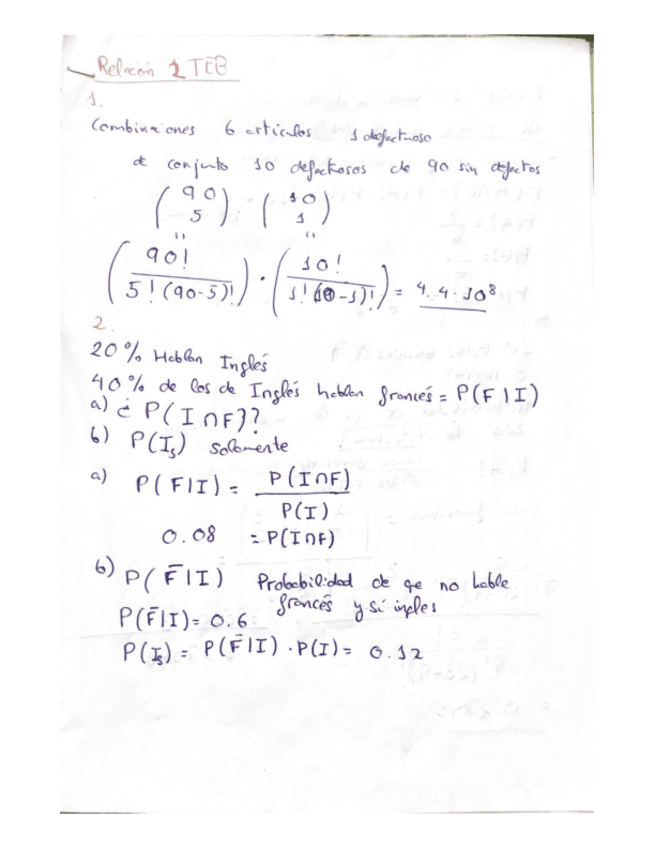 Relación 2 TEB
1.
Combinaciones 6 artículos 1 defectuoso
de conjunto 10 defectuosos de 90 sin defectos
(90 5) · (10 1)
" "
(90! / 5!(90-5)!) · (10! / 1!(10-1)!) = 4.4·10⁸
2.
20% Hablan Inglés
40% de los de Inglés hablan francés = P(F|I)
a) ¿P(I∩F)?
b) P(Is) solamente
a) P(F|I) = P(I∩F) / P(I)
0.08 = P(I∩F)
b) P(F̄|I) Probabilidad de que no hable
francés y sí inglés
P(F̄|I) = 0.6
P(Is) = P(F̄|I) · P(I) = 0.12